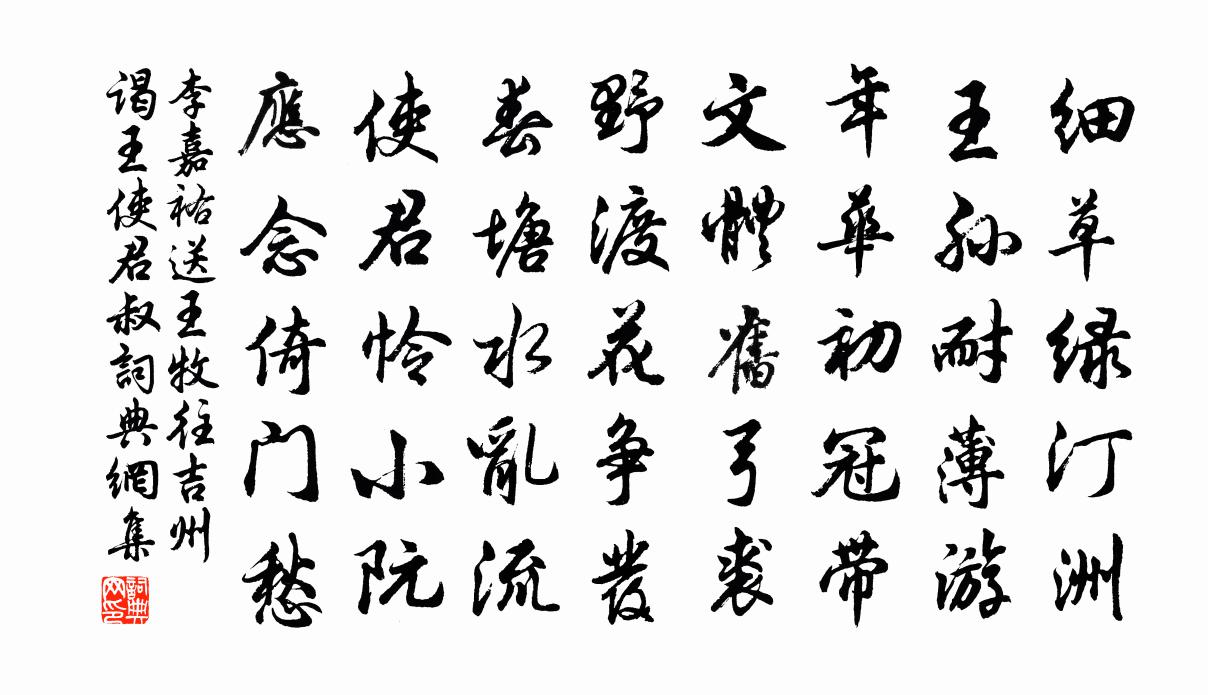 细草绿汀洲
王孙耐薄游
年華初冠带
文體舊弓裘
野渡花争發
春塘水亂流
使君怜小阮
應念倚门愁
李嘉祐送王牧往吉州
谒王使君叔詞典網集
詞典
网印